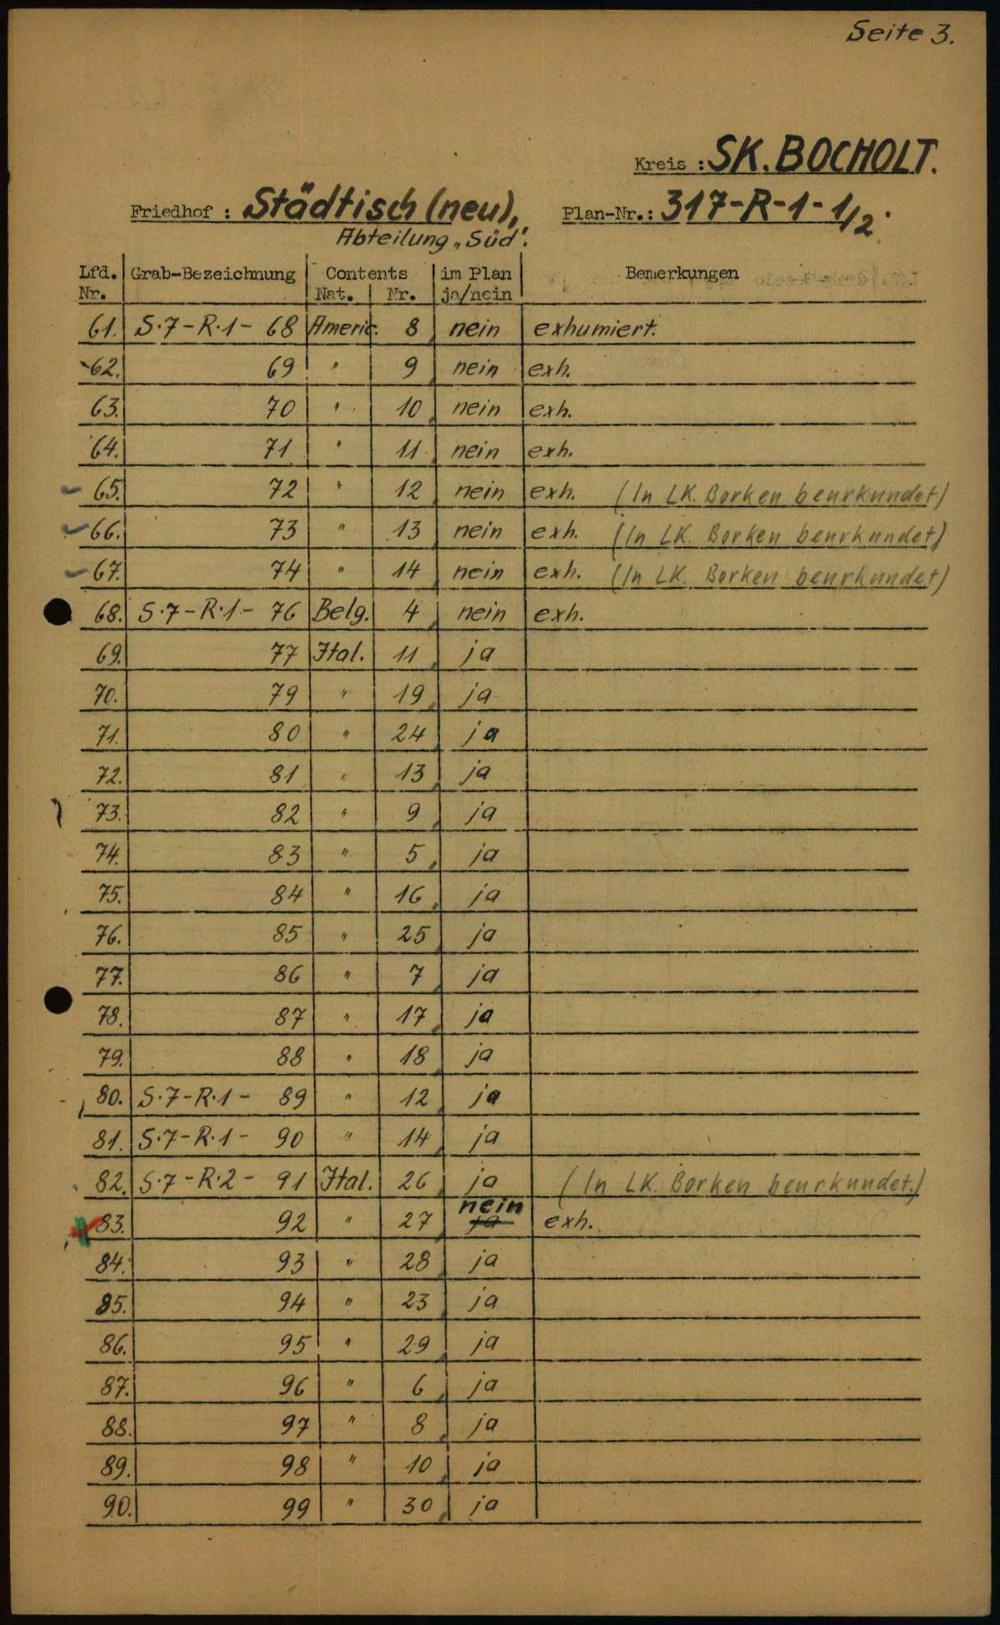 Seite 3.
Kreis : SK. BOCHOLT.
Friedhof : Städtisch (neu), Plan-Nr.: 317-R-1-1/2.
Abteilung „Süd".
Lfd. Nr. Grab-Bezeichnung Contents Nat. Nr. im Plan ja/nein Bemerkungen
61. S.7-R.1- 68 Americ. 8 nein exhumiert.
62. 69 " 9 nein exh.
63. 70 " 10 nein exh.
64. 71 " 11 nein exh.
65. 72 " 12 nein exh. (In LK. Borken beurkundet)
66. 73 " 13 nein exh. (In LK. Borken beurkundet)
67. 74 " 14 nein exh. (In LK. Borken beurkundet)
68. S.7-R.1- 76 Belg. 4 nein exh.
69. 77 Ital. 11 ja
70. 79 " 19 ja
71. 80 " 24 ja
72. 81 " 13 ja
73. 82 " 9 ja
74. 83 " 5 ja
75. 84 " 16 ja
76. 85 " 25 ja
77. 86 " 7 ja
78. 87 " 17 ja
79. 88 " 18 ja
80. S.7-R.1- 89 " 12 ja
81. S.7-R.1- 90 " 14 ja
82. S.7-R.2- 91 Ital. 26 ja (In LK. Borken beurkundet.)
83. 92 " 27 ja nein exh.
84. 93 " 28 ja
85. 94 " 23 ja
86. 95 " 29 ja
87. 96 " 6 ja
88. 97 " 8 ja
89. 98 " 10 ja
90. 99 " 30 ja